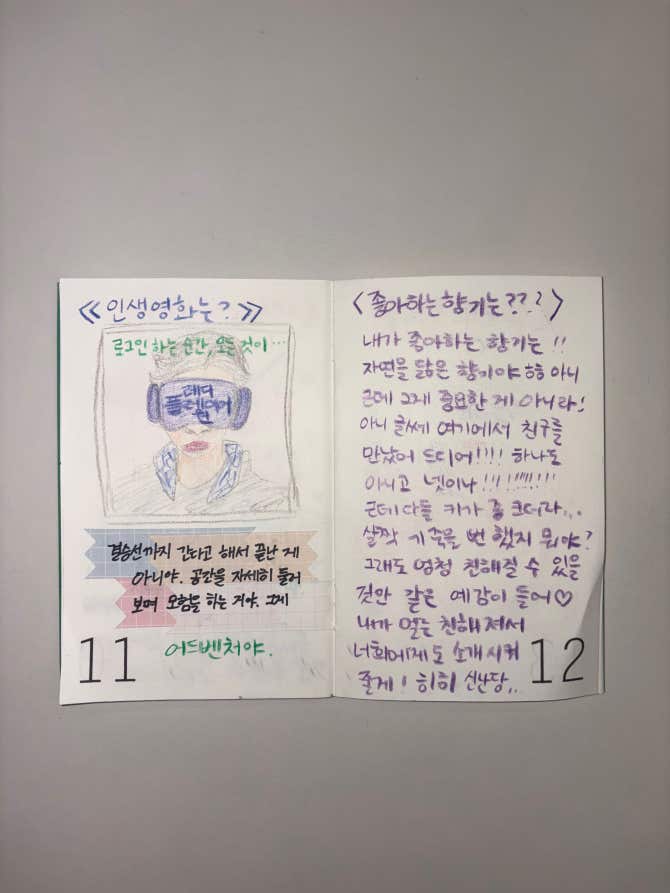 《인생영화는?》
로그인 하는 순간, 모든 것이…
레디
플레이어
원
결승선까지 간다고 해서 끝난 게
아니야. 공간을 자세히 들러
보며 모험을 하는 거야. 그게
어드벤처야.
11
<좋아하는 향기는???>
내가 좋아하는 향기는 !!
자연을 닮은 향기야 하하 아니
근데 그게 중요한 게 아니라!
아니 글쎄 여기에서 친구를
만났어 드디어!!!! 하나도
아니고 넷이나 !!!!!!!!!
근데 다들 키가 좀 크더라...
살짝 기죽을 뻔 했지 뭐야?
그래도 엄청 친해질 수 있을
것만 같은 예감이 들어♡
내가 얼른 친해져서
너희에게도 소개시켜
줄게! 히히 신난당..
12